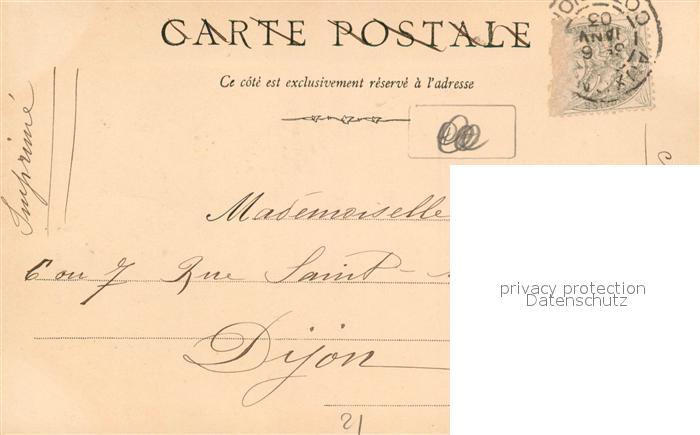 CARTE POSTALE
Ce côté est exclusivement réservé à l'adresse
Imprimé
Mademoiselle
6 ou 7 Rue Saint-
Dijon
21
privacy protection
Datenschutz